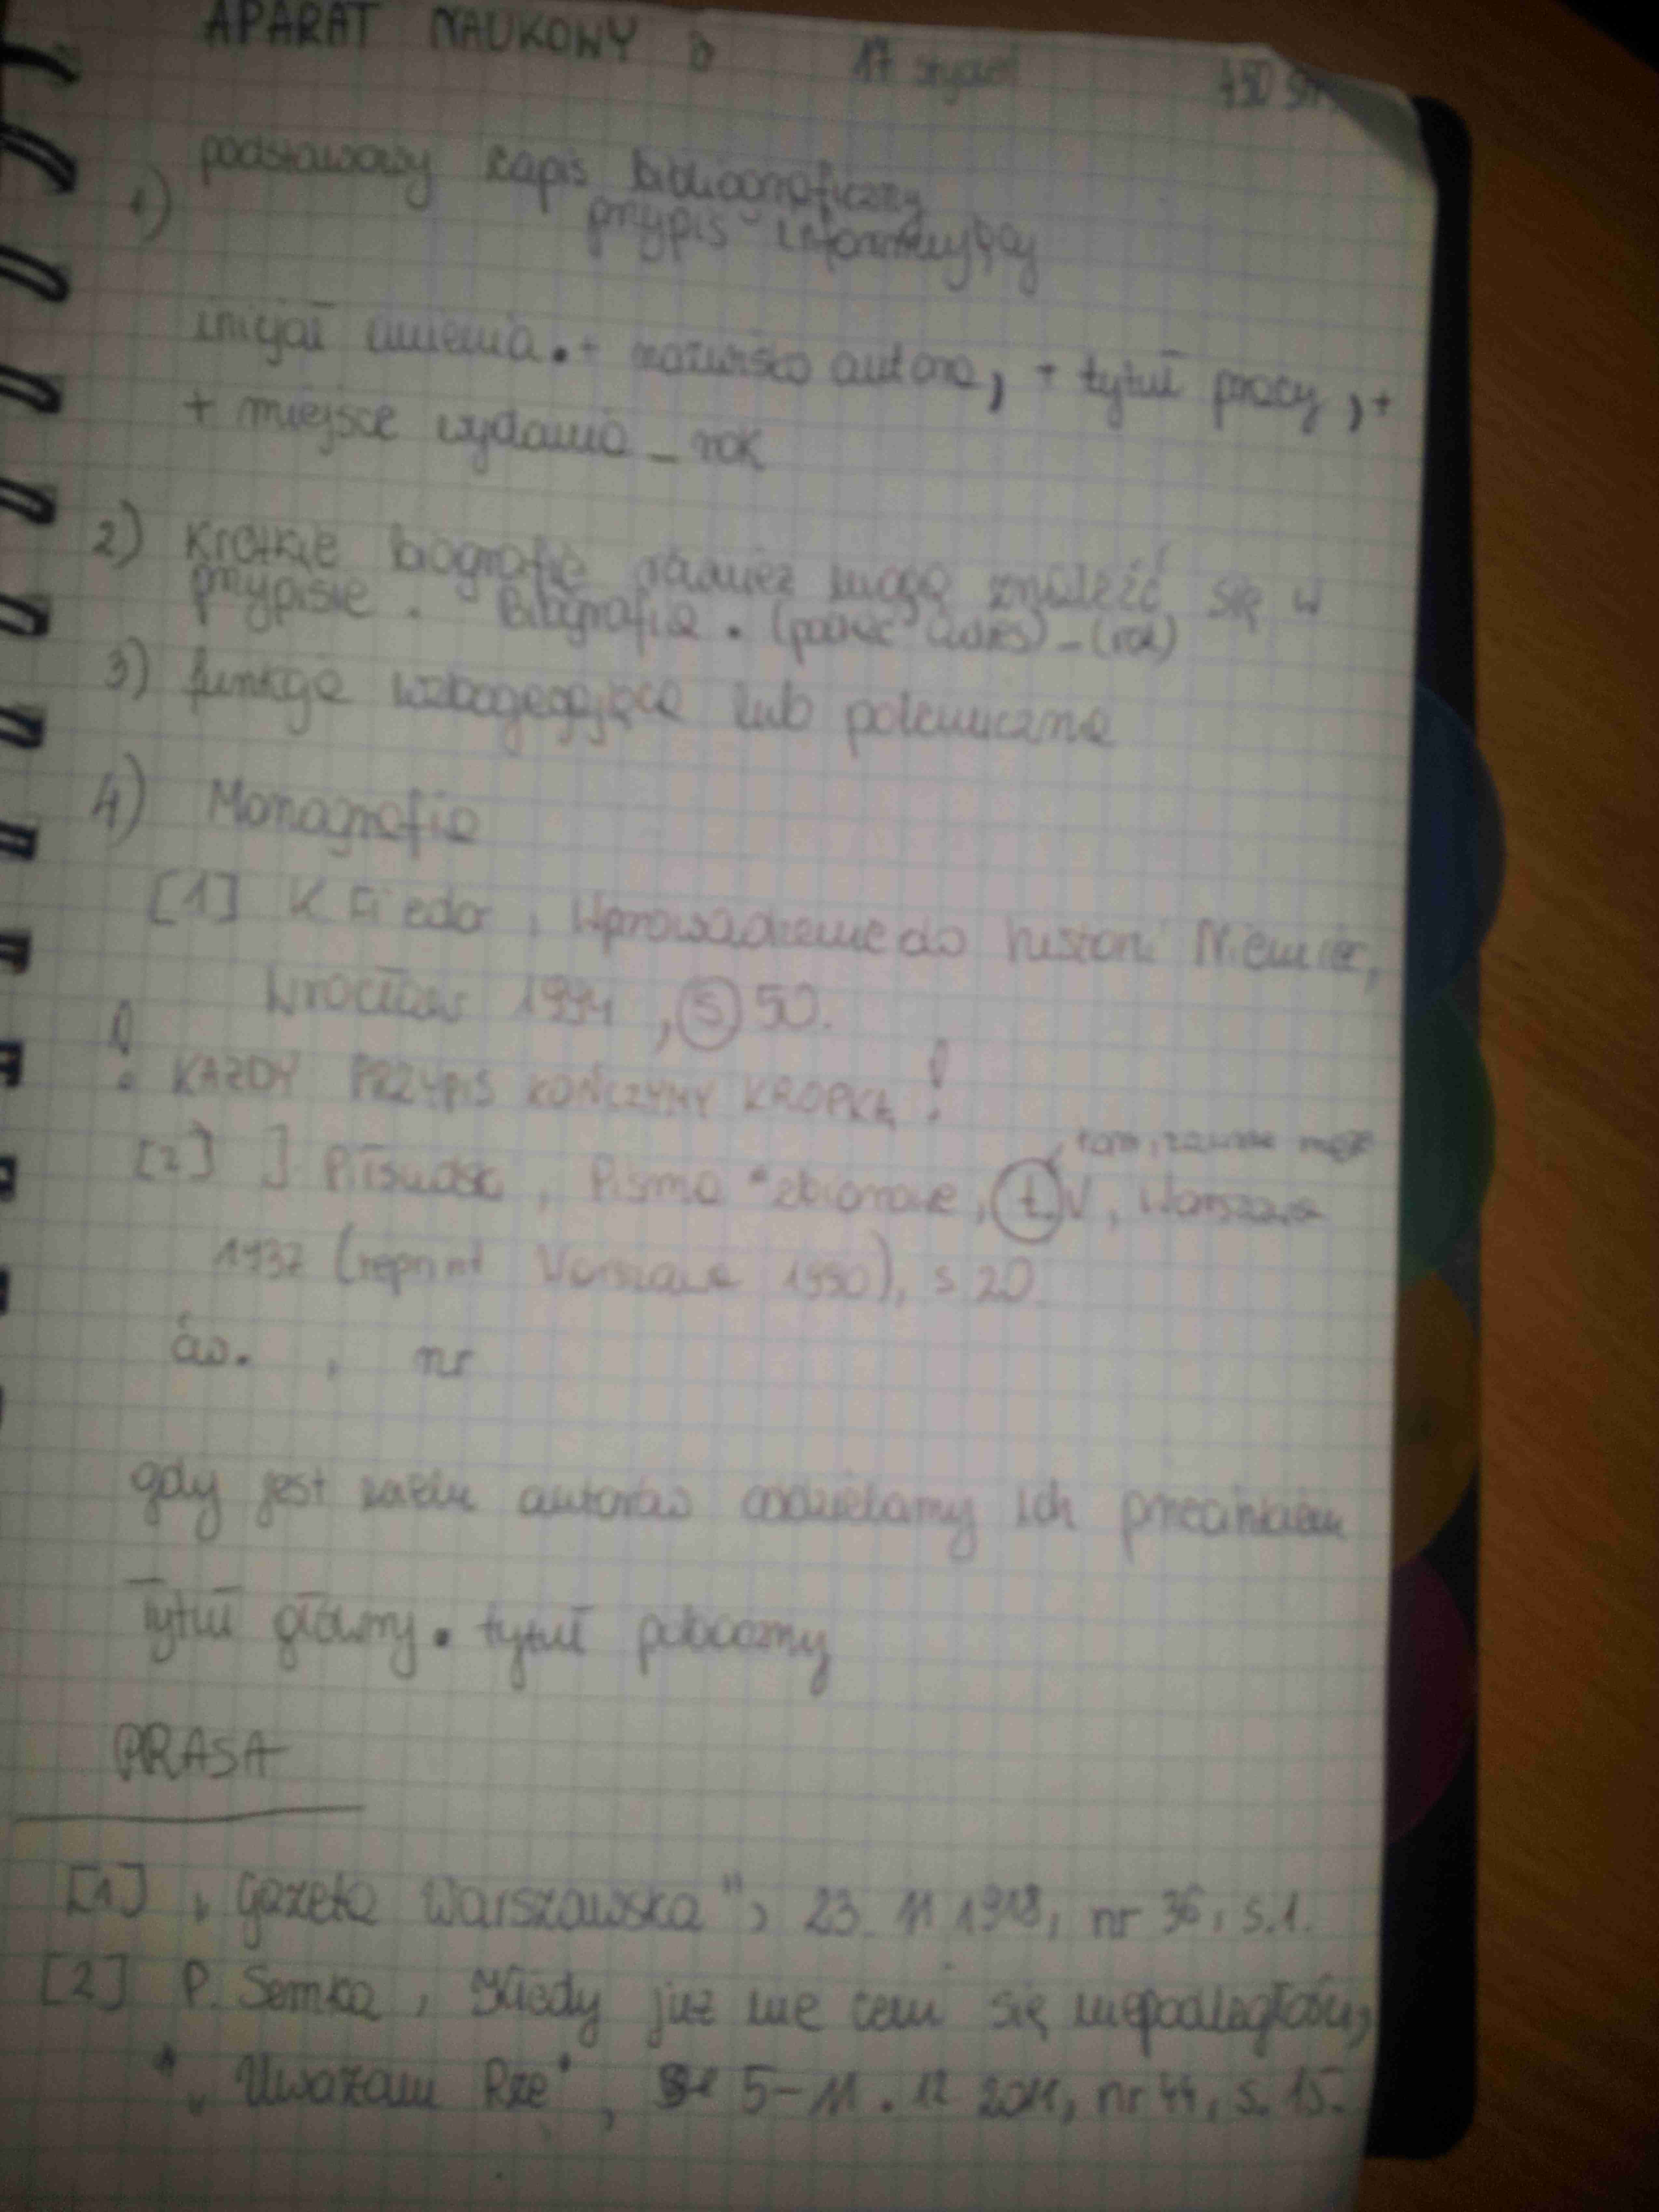 APARAT NAUKOWY
17 styczeń
podstawowy zapis bibliograficzny
1) przypis informujący
inicjał imienia. + nazwisko autora, + tytuł pracy, +
+ miejsce wydania _ rok
2) Krótkie biografie również mogą znaleźć się w
przypisie. Biografie. (rok)
3) funkcje wzbogacające lub polemiczne
4) Monografie
[1] K Fiedor, Wprowadzenie do historii Niemiec,
Wrocław 1994, s 50.
! KAŻDY PRZYPIS KOŃCZYMY KROPKĄ !
tom, zawsze
[2] J. Piłsudski, Pisma zbiorowe, t. V, Warszawa
1937 (reprint Warszawa 1990), s 20
, nr
gdy jest wielu autorów oddzielamy ich przecinkiem
Tytuł główny. tytuł poboczny
PRASA
[1] „Gazeta Warszawska", 23. 11 1918, nr 36, s.1.
[2] P. Semka, Kiedy już nie ceni się niepodległości,
„Uważam Rze", 5-11. 12 2011, nr 44, s. 15.